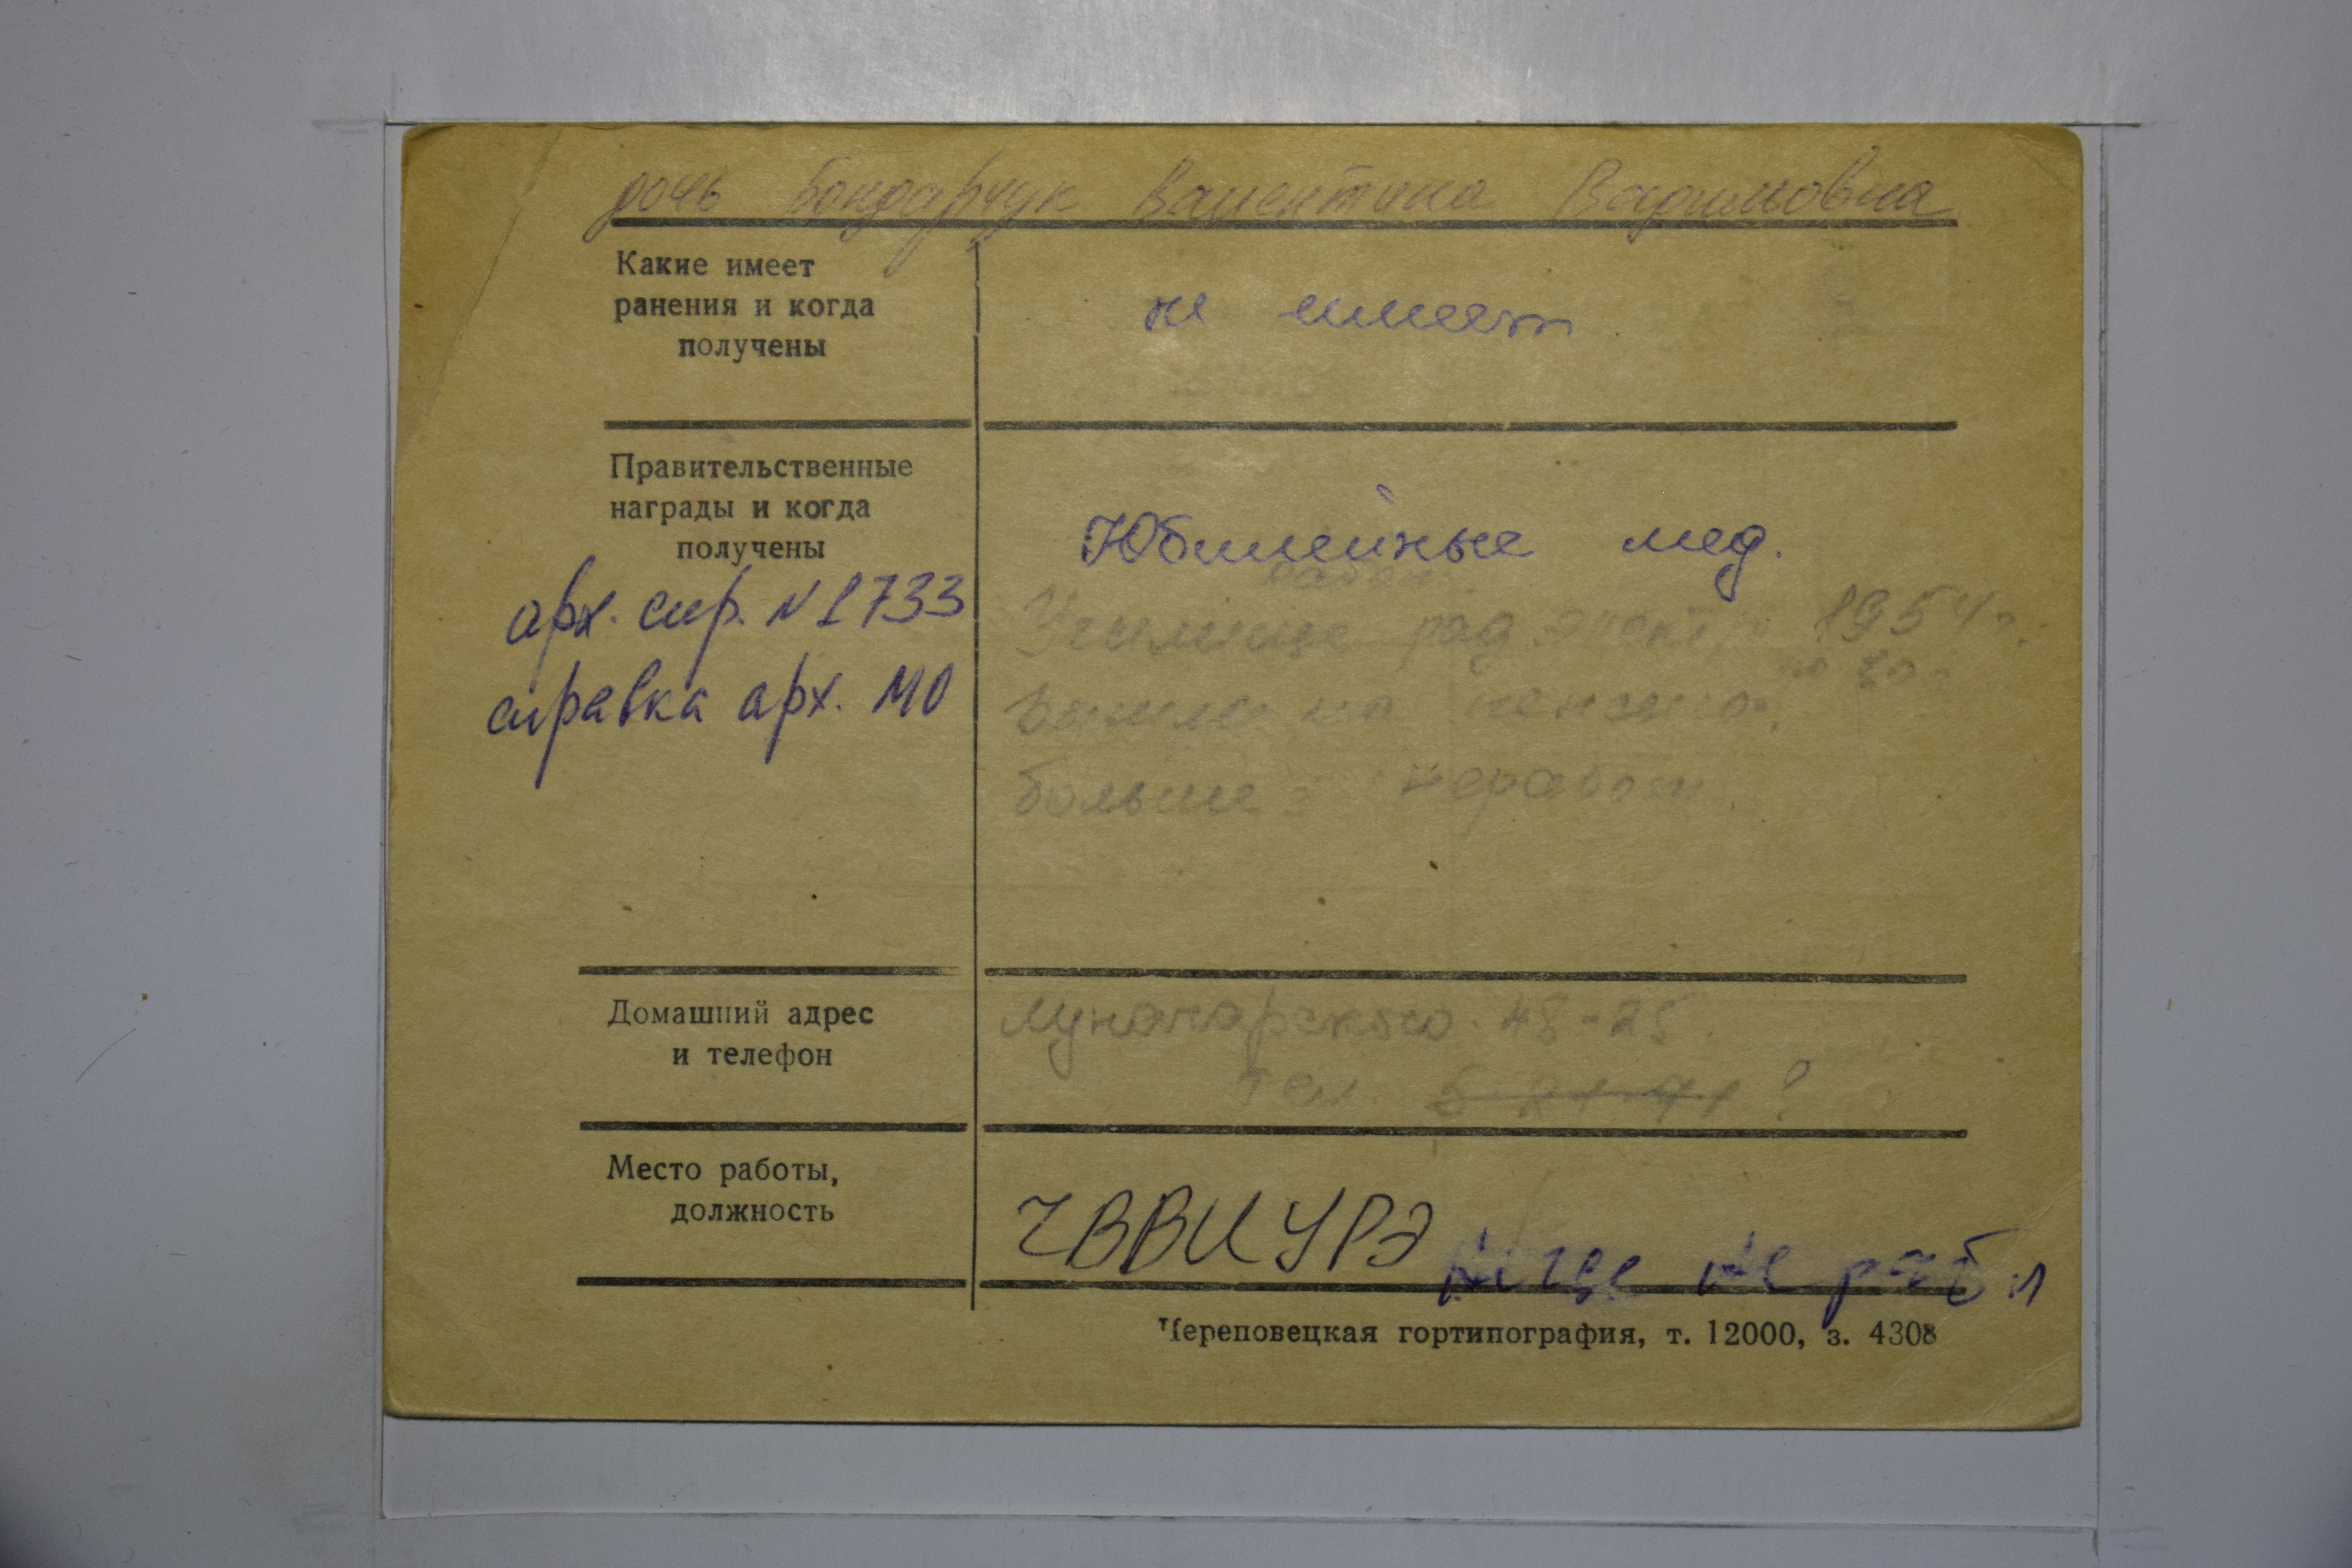 дочь Бондарчук Валентина Вадимовна
Какие имеет
ранения и когда
получены
не имеет
Правительственные
награды и когда
получены
Юбилейные мед.
арх. спр. N 1733
справка арх. МО
работ.
Училище рад. электр 1954 г.
Вышла на пенсию
больше неработ.
Домашний адрес
и телефон
Луначарского 48-25.
Тел. ?
Место работы,
должность
ЧВВИУРЭ Нигде не раб
Череповецкая гортипография, т. 12000, з. 4308